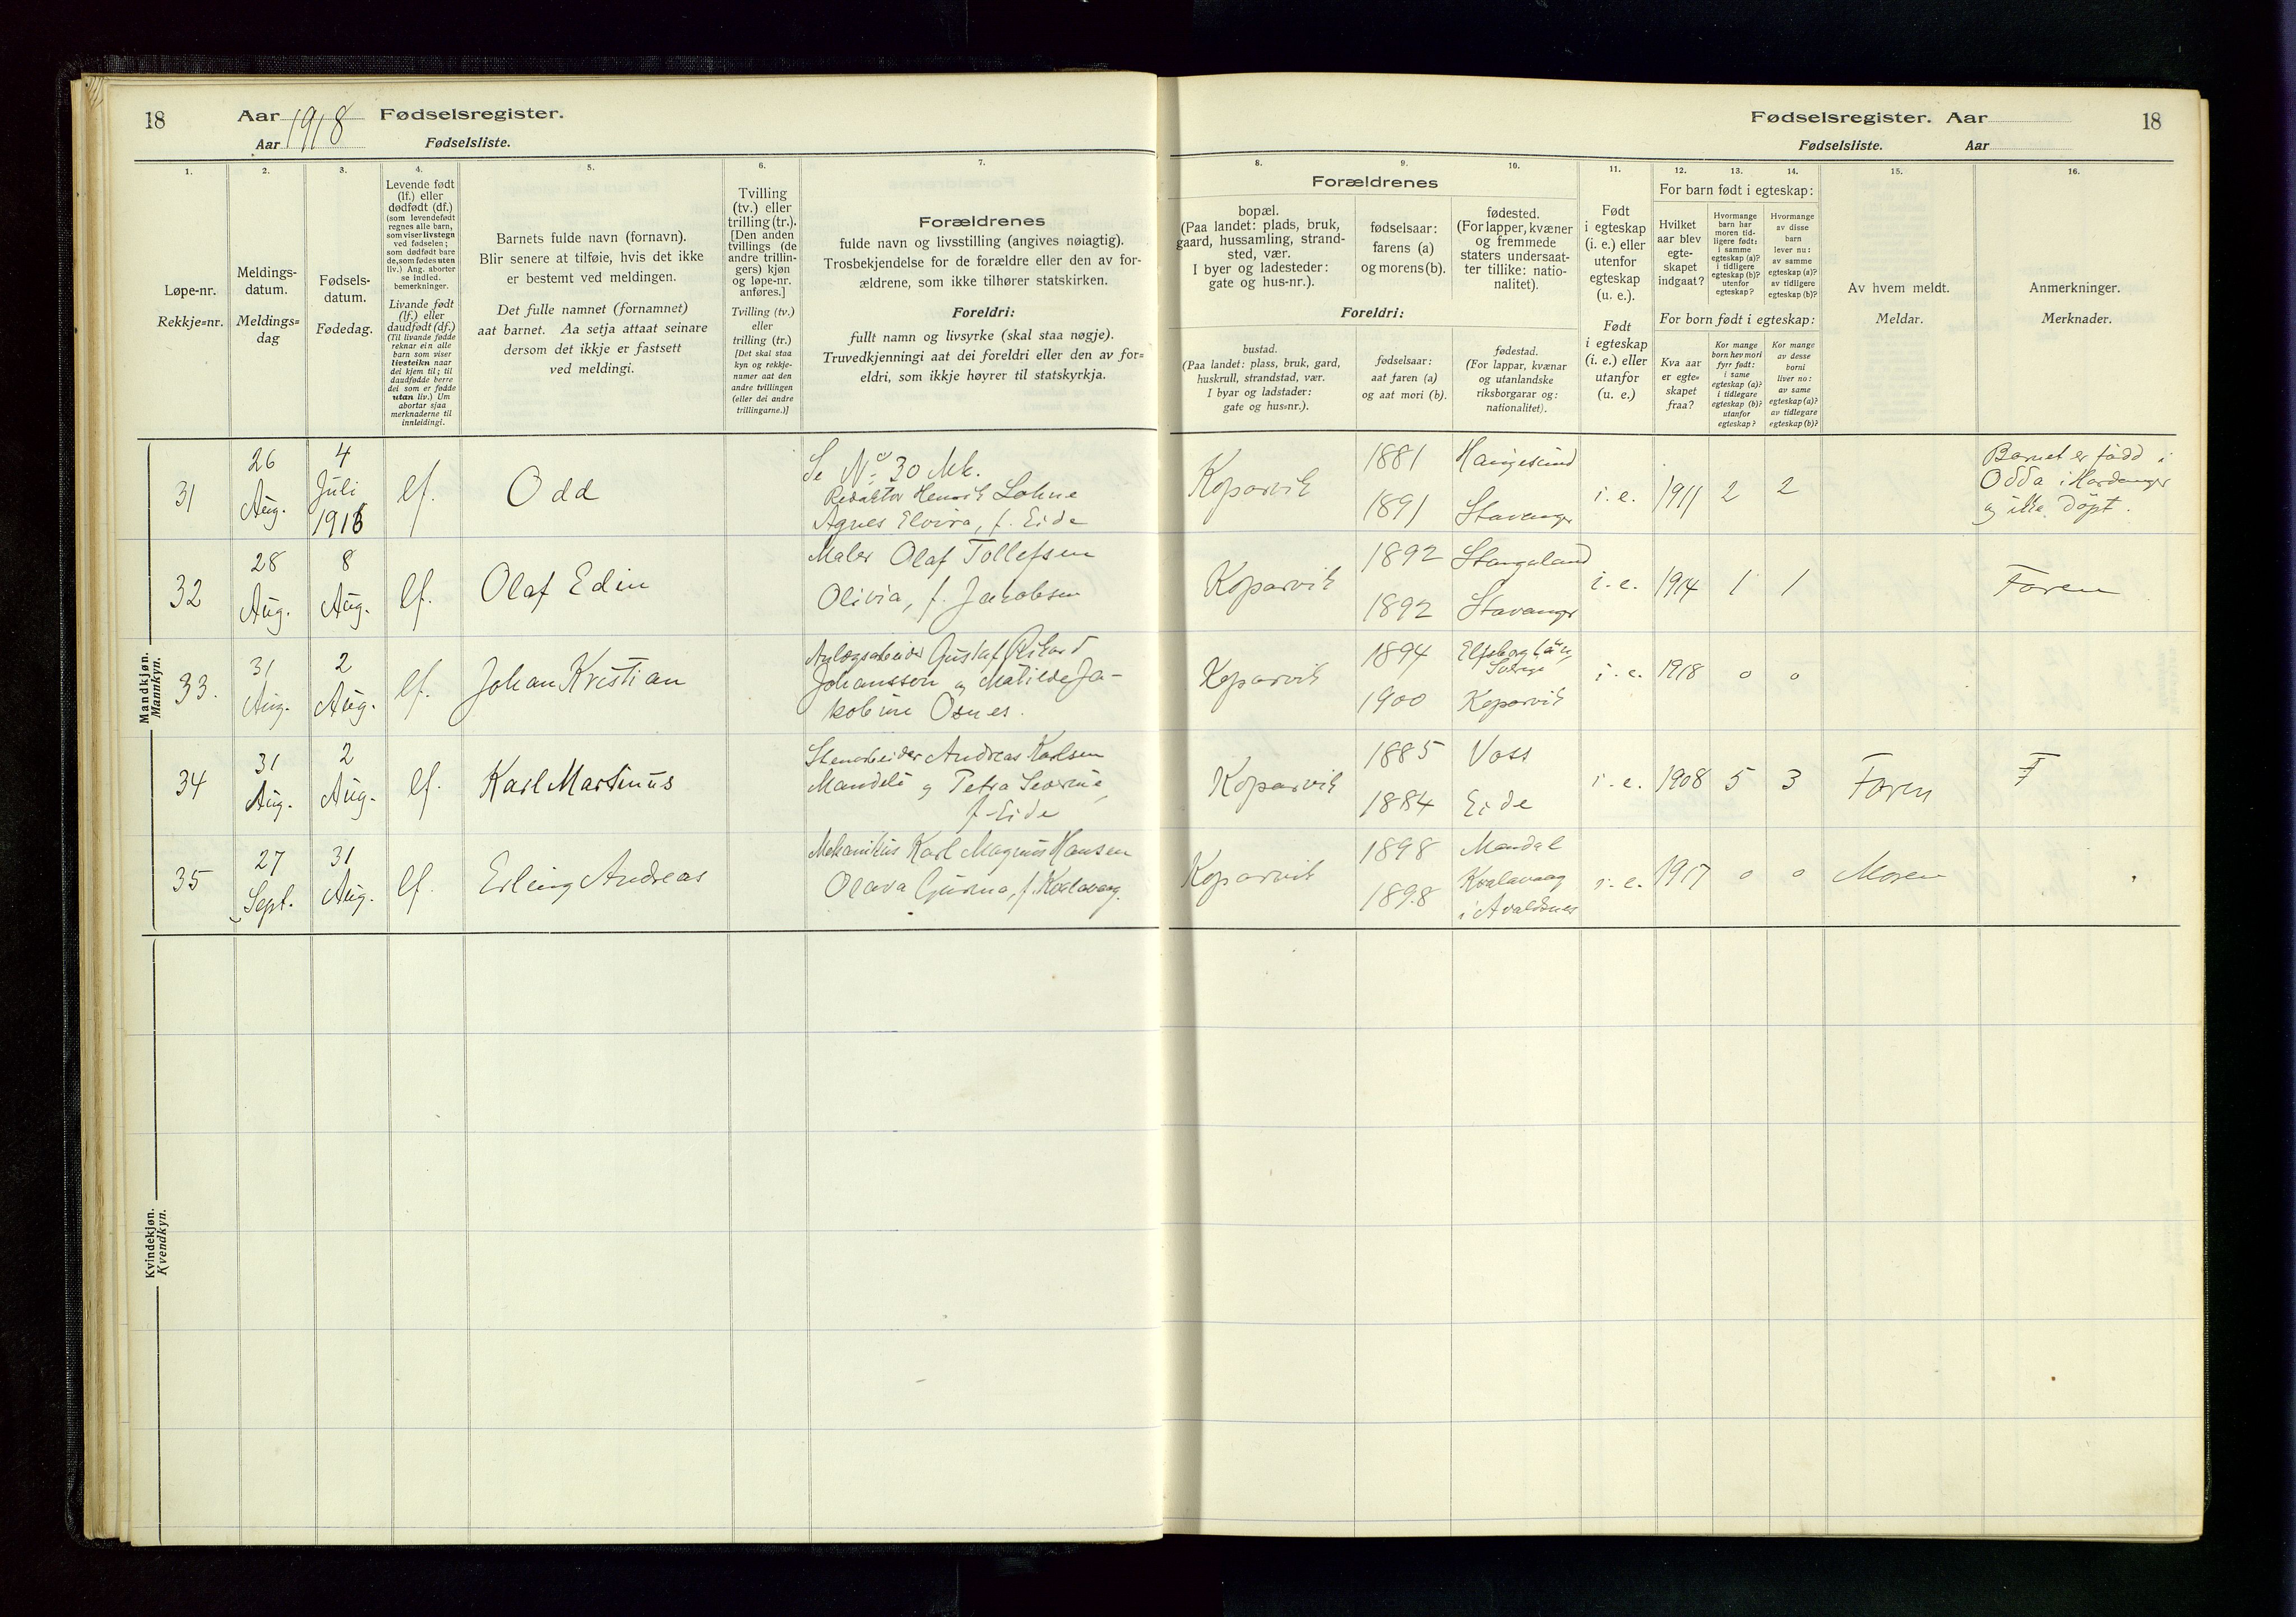 18 Aar 1918 Fødselsregister.
Aar Fødselsliste.
Fødselsregister. Aar 18
Fødselsliste. Aar
1. 2. 3. 4. 5. 6. 7.
Løpe-nr.
Rekkje=nr.
Meldings-
datum.
Meldings=
dag
Fødsels-
datum.
Fødedag.
Levende født
(lf.) eller
dødfødt (df.)
(som levendefødt
regnes alle barn,
som viser livstegn
ved fødselen;
som dødfødt bare
de, som fødes uten
liv.) Ang. aborter
se indled.
bemerkninger.
Livande født
(lf.) eller
daudfødt (df.)
(Til livande fødde
reknar ein alle
barn som viser
livsteikn naar
dei kjem til; til
daudfødde berre
dei som er fødde
utan liv.) Um
abortar sjaa
merknaderne til
innleidingi.
Barnets fulde navn (fornavn).
Blir senere at tilføie, hvis det ikke
er bestemt ved meldingen.
Det fulle namnet (fornamnet)
aat barnet. Aa setja attaat seinare
dersom det ikkje er fastsett
ved meldingi.
Tvilling
(tv.) eller
trilling (tr.).
[Den anden
tvillings (de
andre trillin-
gers) kjøn
og løpe-nr.
anføres.]
Tvilling (tv.)
eller
trilling (tr.)
[Det skal staa
kyn og rekkje-
numer aat den
andre tvillingen
(eller dei andre
trillingarne.)]
Forældrenes
fulde navn og livsstilling (angives nøiagtig).
Trosbekjendelse for de forældre eller den av for-
ældrene, som ikke tilhører statskirken.
Foreldri:
fullt namn og livsyrke (skal staa nøgje).
Truvedkjenningi aat dei foreldri eller den av for=
eldri, som ikkje høyrer til statskyrkja.
8. 9. 10. 11. 12. 13. 14. 15. 16.
Forældrenes
bopæl.
(Paa landet: plads, bruk,
gaard, hussamling, strand-
sted, vær.
I byer og ladesteder:
gate og hus-nr.).
fødselsaar:
farens (a)
og morens (b).
fødested.
(For lapper, kvæner
og fremmede
staters undersaat-
ter tillike: natio-
nalitet).
Foreldri:
bustad.
(Paa landet: plass, bruk, gard,
huskrull, strandstad, vær.
I byar og ladstader:
gate og hus=nr.).
fødselsaar:
aat faren (a)
og aat mori (b).
fødestad.
(For lappar, kvænar
og utanlandske
riksborgarar og:
nationalitet).
Født
i egteskap
(i. e.) eller
utenfor
egteskap
(u. e.).
Født
i egteskap
(i. e.) eller
utanfor
(u. e.)
For barn født i egteskap:
Hvilket
aar blev
egte-
skapet
indgaat?
Hvormange
barn har
moren tid-
ligere født:
i samme
egteskap (a)?
i tidligere
egteskap (b)?
utenfor
egteskap?
Hvormange
av disse
barn
lever nu:
av samme
egteskap (a)?
av tidligere
egteskap (b)?
For born født i egteskap:
Kva aar
er egte=
skapet
fraa?
Kor mange
born hev mori
fyrr født:
i same
egteskap (a)?
i tidlegare
egteskap (b)?
utanfor
egteskap?
Kor mange
av desse
borni
liver no:
av same
egteskap (a)?
av tidlegare
egteskap (b)?
Av hvem meldt.
Meldar.
Anmerkninger.
Merknader.
Mandkjøn.
Mannkyn.
31 26 Aug. 4 Juli 1916 lf. Odd
Se No 30 Mk.
Redaktør Henrik Lohne
Agnes Elvira, f. Eide
Kopervik 1881 Haugesund
1891 Stavanger
i. e. 1911 2 2
Barnet er född i
Odda i Hardanger
og ikke döpt.
32 28 Aug. 8 Aug. lf. Olaf Edin
Maler Olaf Tollefsen
Olivia, f. Jakobsen
Kopervik 1892 Stangeland
1892 Stavanger
i. e. 1914 1 1 Faren
33. 31 Aug. 2 Aug. lf. Johan Kristian
Anlægsarbeider Gustaf Rikard
Johansson og Matilde Ja-
kobine Osnes.
Kopervik 1894 Elfsborg län,
Sverige
1900 Kopervik
i. e. 1918 0 0
34 31 Aug. 2 Aug. lf. Karl Martinus
Stenarbeider Andreas Karlsen
Mandele og Petra Severine,
f. Eide
Kopervik 1885 Voss
1884 Eide
i. e. 1908 5 3 Faren F
35 27 Sept. 31 Aug. lf. Erling Andreas
Mekanikus Karl Magnus Hansen
Olava Gurina, f. Kvalavaag.
Kopervik 1898 Mandal
1898 Kvalavaag
i Avaldsnes
i. e. 1917 0 0 Moren
Kvindekjøn.
Kvendkyn.